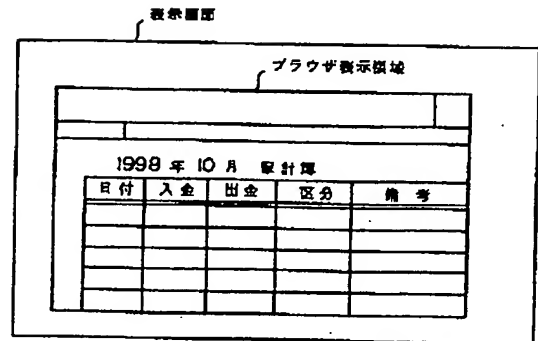 表示画面
ブラウザ表示領域
1998 年 10 月 家計簿
日付 入金 出金 区分 備考